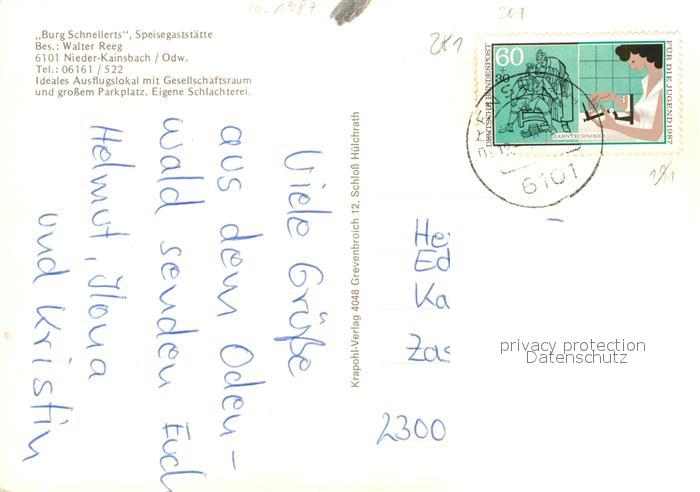 ca. 1987
201
281
„Burg Schnellerts", Speisegaststätte
Bes.: Walter Reeg
6101 Nieder-Kainsbach / Odw.
Tel.: 06161 / 522
Ideales Ausflugslokal mit Gesellschaftsraum
und großem Parkplatz. Eigene Schlachterei.
Viele Grüße
aus dem Oden-
wald senden Euch
Helmut, Ilona
und Kristin
Krapohl-Verlag 4048 Grevenbroich 12, Schloß Hülchrath
DEUTSCHE BUNDESPOST
60
30
FÜR DIE JUGEND 1987
ZAHNTECHNIKER
6101
281
He
Ed
Ka
Zas
2300
privacy protection
Datenschutz